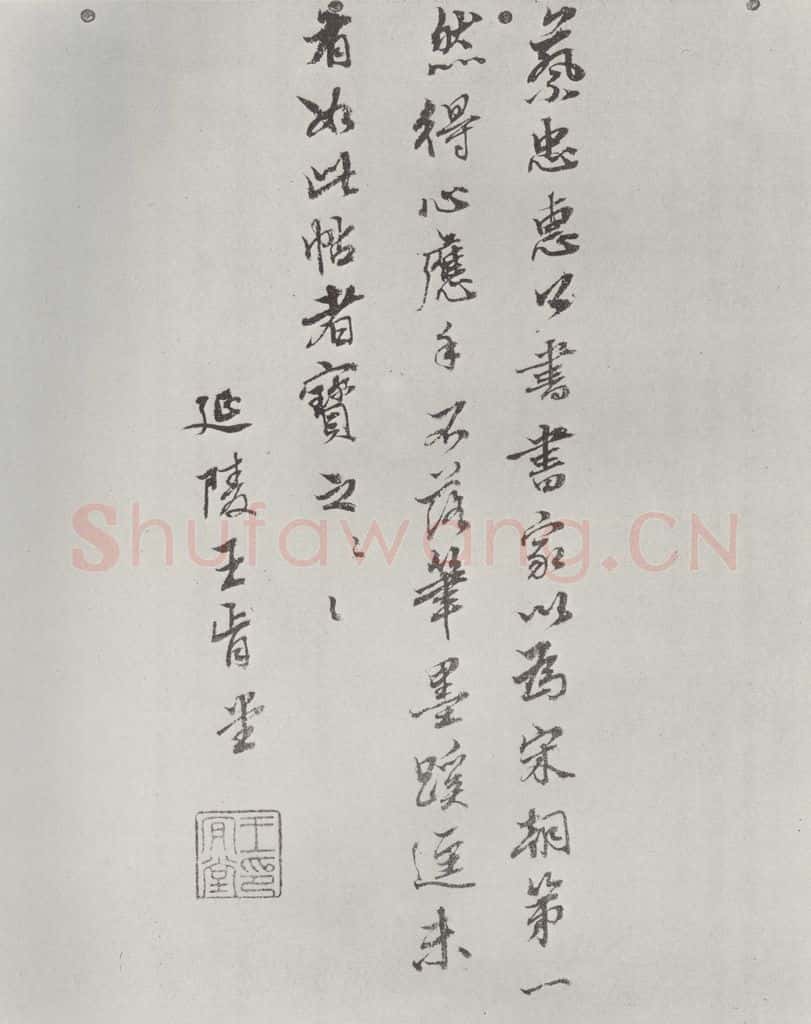 蔡忠惠公書書家以為宋朝第一
然得心應手不落筆墨蹊逕未
有如此帖者寶之〻〻
延陵王肯堂
王印肯堂
Shufawang.CN